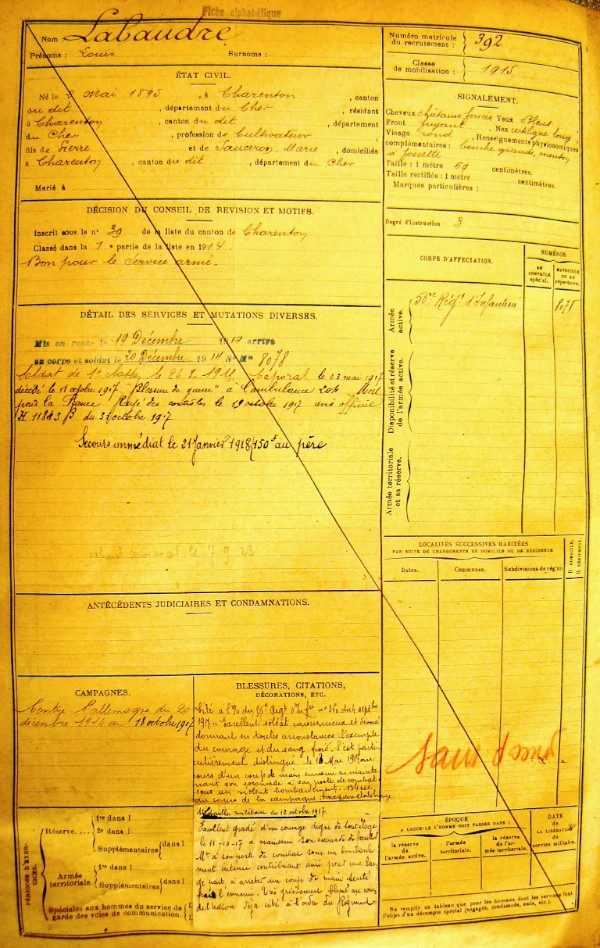 Fiche alphabétique
Nom Labaudre
Prénoms : Louis Surnoms :
ÉTAT CIVIL.
Né le mai 1895, à Charenton, canton
du dit, département du Cher, résidant
à Charenton, canton du dit, département
du Cher, profession de Cultivateur
fils de Pierre et de Sauceron Marie, domiciliés
à Charenton, canton du dit, département du Cher
Marié à
DÉCISION DU CONSEIL DE REVISION ET MOTIFS.
Inscrit sous le n° 39 de la liste du canton de Charenton
Classé dans la 1e partie de la liste en 1914.
Bon pour le Service armé.
DÉTAIL DES SERVICES ET MUTATIONS DIVERSES.
Mis en route le 19 Décembre 1914 arrivé
au corps et soldat le 20 Décembre 1914 N° Mle 8078
Soldat de 1e classe le 26 1915. Caporal le 23 mai 1917
décédé le 18 octobre 1917 "Blessures de guerre" à l'ambulance Mort
pour la France. Rayé des contrôles le 19 octobre 1917 avis officiel
N. 11843 du 31 octobre 1917
Secours immédiat le 21 Janvier 1918 150f au père
le 7.9.23
ANTÉCÉDENTS JUDICIAIRES ET CONDAMNATIONS.
CAMPAGNES.
Contre l'allemagne du 20
décembre 1914 au 18 octobre 1917
BLESSURES, CITATIONS,
DÉCORATIONS, ETC.
Cité à l'O. du 95e Régt d'Infie sept
1917 : Excellent soldat consciencieux et dévoué
donnant en toutes circonstances l'exemple
du courage et du sang froid. S'est parti
culièrement distingué le 18 Mai 1917 au
cours d'un coup de main ennemi en mainte
nant son escouade à son poste de combat
sous un violent bombardement. Blessé
au cours de la campagne.
Médaille militaire du 12 octobre 1917
Excellent gradé d'un courage digne de tout éloge
le 11-10-17 a maintenu son escouade de
à son poste de combat sous un bombarde
ment intense contribuant ainsi pour une large
part à arrêter un coup de main tenté
par l'ennemi. Très grièvement blessé au cours
de l'action Déjà cité à l'ordre du Régiment
PÉRIODES D'EXERCICES.
Réserve
1re dans l
2e dans l
Supplémentaires dans l
Armée territoriale
1re dans l
Supplémentaires dans l
Spéciales aux hommes du service de garde des voies de communication.
Numéro matricule du recrutement : 392
Classe de mobilisation : 1915
SIGNALEMENT.
Cheveux châtains foncés Yeux bleus
Front fuyant Nez rectiligne long
Visage rond Renseignements physionomiques
complémentaires : bouche grande, menton
à fossette
Taille : 1 mètre 69 centimètres.
Taille rectifiée : 1 mètre centimètres.
Marques particulières :
Degré d'instruction : 3
CORPS D'AFFECTATION.
NUMÉROS
AU CONTRÔLE spécial.
MATRICULE OU AU répertoire.
Armée active.
95e Régt d'Infanterie 8078
Disponibilité et réserve de l'armée active.
Armée territoriale et sa réserve.
LOCALITÉS SUCCESSIVES HABITÉES
PAR SUITE DE CHANGEMENTS DE DOMICILE OU DE RÉSIDENCE
Dates. Communes. Subdivisions de région. D. domicile. R. résidence.
ÉPOQUE
À LAQUELLE L'HOMME DOIT PASSER DANS :
la réserve de l'armée active.
l'armée territoriale.
la réserve de l'armée territoriale.
DATE DE LA LIBÉRATION du service militaire.
Ne remplir ce tableau que pour les hommes dont les services font
l'objet d'un décompte spécial (engagés, condamnés, omis, etc.).